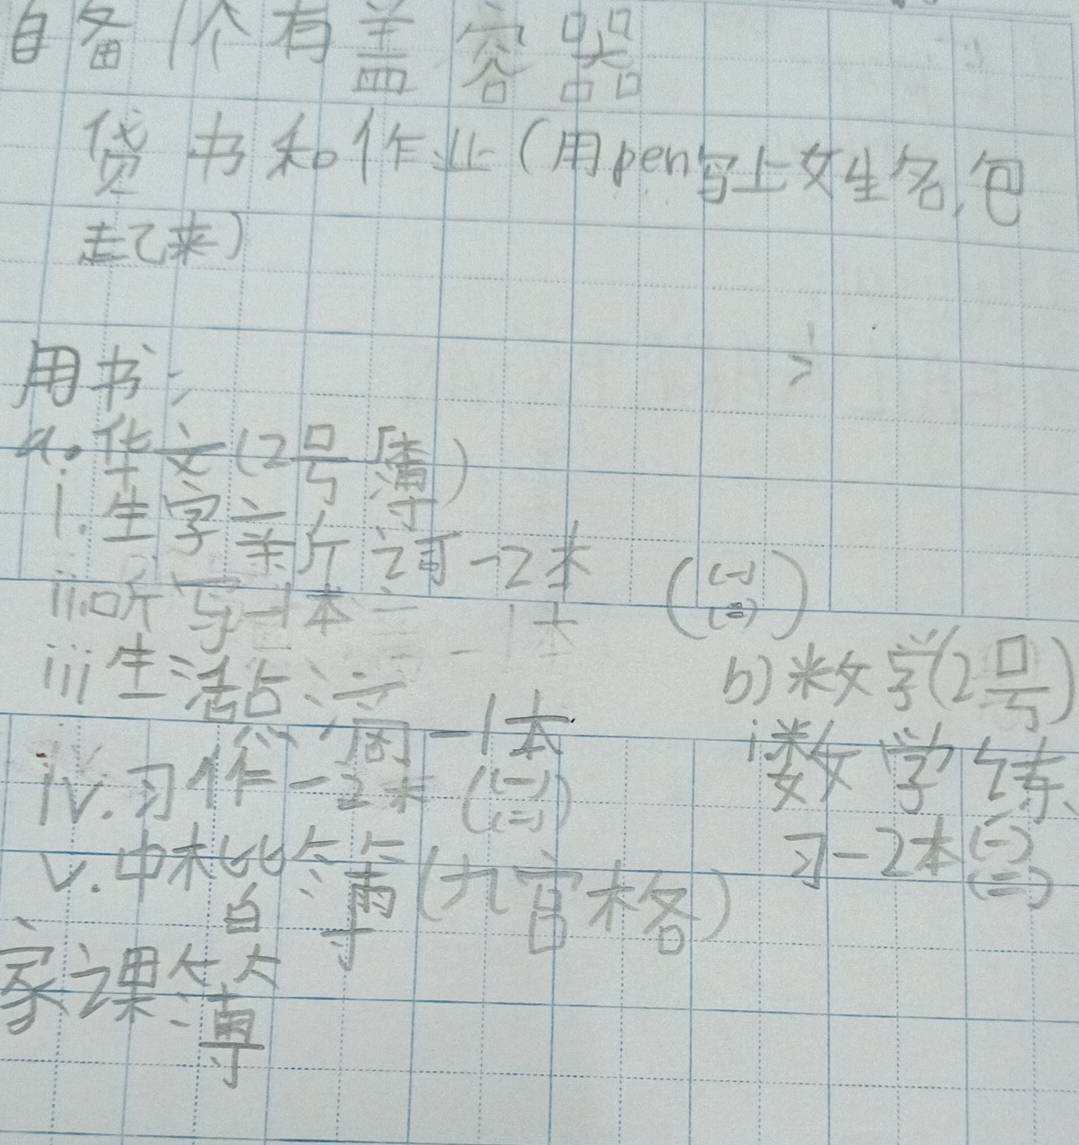 自备1个有盖容器
贷书和作业(用pen写上女生名,包
起来)
用书:
a.华文(2号簿)
i.生字新词-2本 ((一)(二))
ii.听写-1本
iii生活
-1本
iv.习作-2本((一)(二))
v.中楷簿(九宫格)
家课簿
b)数学(2号)
i数学练
习-2本(一)(二)